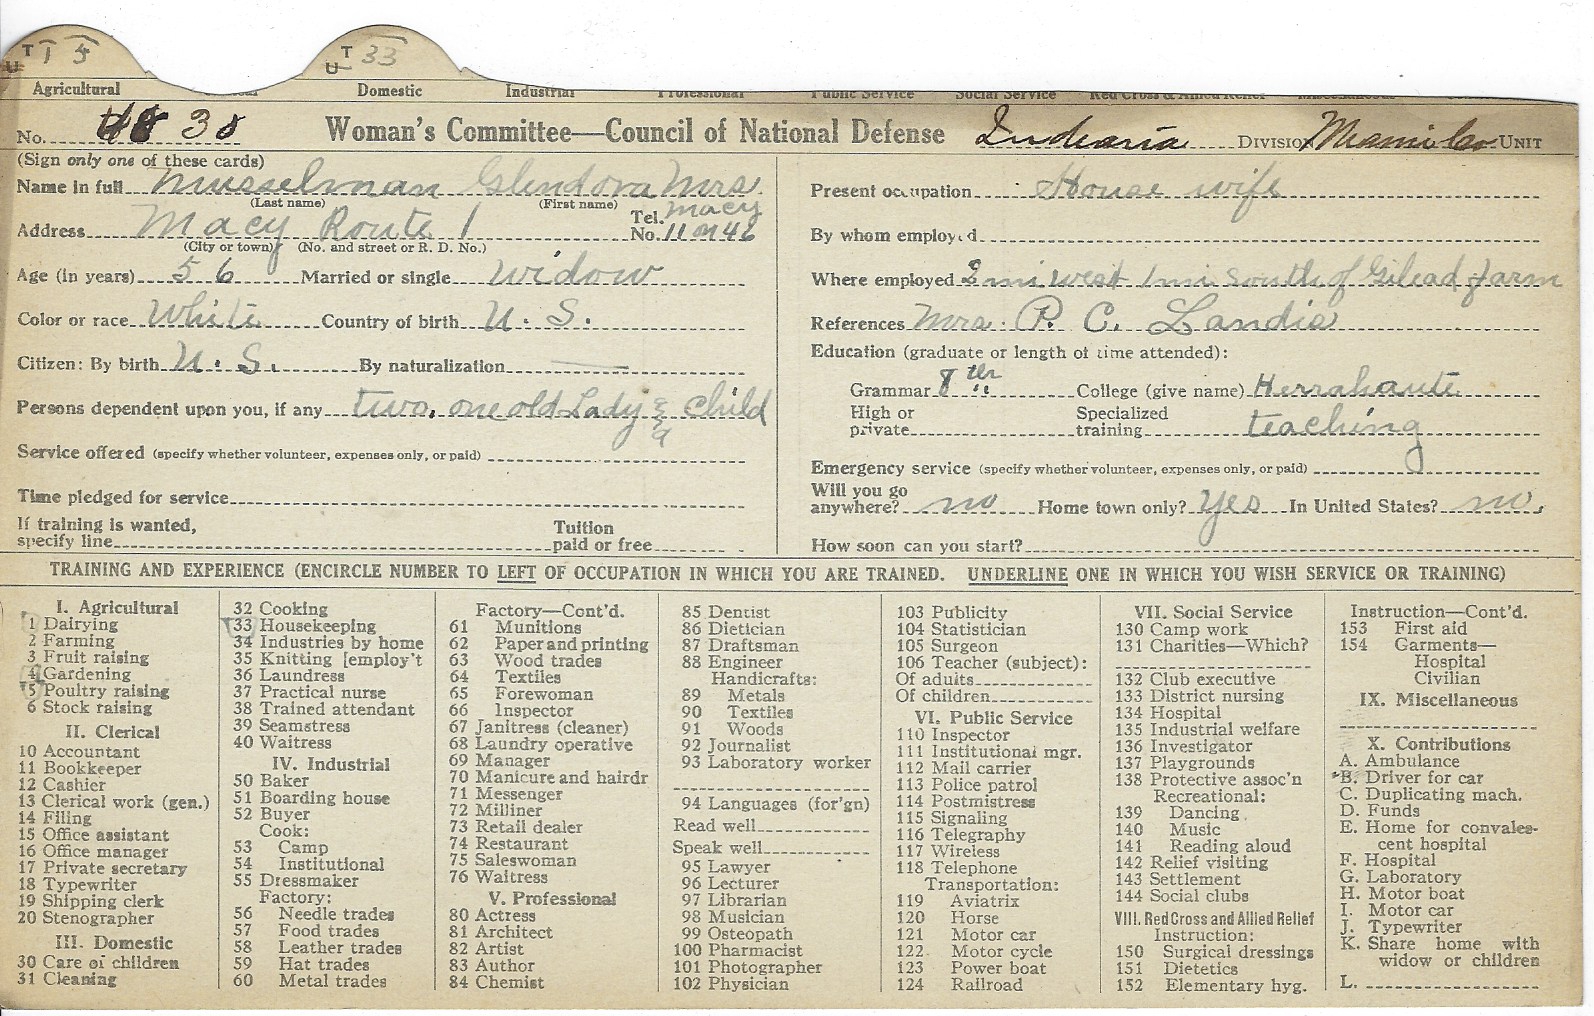 T 1 5 T 33
U U
Agricultural Domestic Industrial Professional Public Service Social Service Red Cross & Allied Relief Miscellaneous
No. 38 Woman's Committee—Council of National Defense Indiana DIVISION Miami Co. UNIT
(Sign only one of these cards)
Name in full Musselman Glendora Mrs
(Last name) (First name)
Address Macy Route 1 Tel. No. Macy 11 on 46
(City or town) (No. and street or R. D. No.)
Age (in years) 56 Married or single Widow
Color or race White Country of birth U. S.
Citizen: By birth U. S. By naturalization —
Persons dependent upon you, if any two, one old Lady & a child
Service offered (specify whether volunteer, expenses only, or paid)
Time pledged for service
If training is wanted, specify line Tuition paid or free
Present occupation House wife
By whom employed
Where employed 2 mi west 1 mi South of Gilead farm
References Mrs. P. C. Landis
Education (graduate or length of time attended):
Grammar 8th College (give name) Herrahaute
High or private Specialized training teaching
Emergency service (specify whether volunteer, expenses only, or paid)
Will you go anywhere? no Home town only? Yes In United States? no.
How soon can you start?
TRAINING AND EXPERIENCE (ENCIRCLE NUMBER TO LEFT OF OCCUPATION IN WHICH YOU ARE TRAINED. UNDERLINE ONE IN WHICH YOU WISH SERVICE OR TRAINING)
I. Agricultural
1 Dairying
2 Farming
3 Fruit raising
4 Gardening
5 Poultry raising
6 Stock raising
II. Clerical
10 Accountant
11 Bookkeeper
12 Cashier
13 Clerical work (gen.)
14 Filing
15 Office assistant
16 Office manager
17 Private secretary
18 Typewriter
19 Shipping clerk
20 Stenographer
III. Domestic
30 Care of children
31 Cleaning
32 Cooking
33 Housekeeping
34 Industries by home
35 Knitting [employ't
36 Laundress
37 Practical nurse
38 Trained attendant
39 Seamstress
40 Waitress
IV. Industrial
50 Baker
51 Boarding house
52 Buyer
Cook:
53 Camp
54 Institutional
55 Dressmaker
Factory:
56 Needle trades
57 Food trades
58 Leather trades
59 Hat trades
60 Metal trades
Factory—Cont'd.
61 Munitions
62 Paper and printing
63 Wood trades
64 Textiles
65 Forewoman
66 Inspector
67 Janitress (cleaner)
68 Laundry operative
69 Manager
70 Manicure and hairdr
71 Messenger
72 Milliner
73 Retail dealer
74 Restaurant
75 Saleswoman
76 Waitress
V. Professional
80 Actress
81 Architect
82 Artist
83 Author
84 Chemist
85 Dentist
86 Dietician
87 Draftsman
88 Engineer
Handicrafts:
89 Metals
90 Textiles
91 Woods
92 Journalist
93 Laboratory worker
94 Languages (for'gn)
Read well
Speak well
95 Lawyer
96 Lecturer
97 Librarian
98 Musician
99 Osteopath
100 Pharmacist
101 Photographer
102 Physician
103 Publicity
104 Statistician
105 Surgeon
106 Teacher (subject):
Of adults
Of children
VI. Public Service
110 Inspector
111 Institutional mgr.
112 Mail carrier
113 Police patrol
114 Postmistress
115 Signaling
116 Telegraphy
117 Wireless
118 Telephone
Transportation:
119 Aviatrix
120 Horse
121 Motor car
122 Motor cycle
123 Power boat
124 Railroad
VII. Social Service
130 Camp work
131 Charities—Which?
132 Club executive
133 District nursing
134 Hospital
135 Industrial welfare
136 Investigator
137 Playgrounds
138 Protective assoc'n
Recreational:
139 Dancing
140 Music
141 Reading aloud
142 Relief visiting
143 Settlement
144 Social clubs
VIII. Red Cross and Allied Relief
Instruction:
150 Surgical dressings
151 Dietetics
152 Elementary hyg.
Instruction—Cont'd.
153 First aid
154 Garments—
Hospital
Civilian
IX. Miscellaneous
X. Contributions
A. Ambulance
B. Driver for car
C. Duplicating mach.
D. Funds
E. Home for convales-
cent hospital
F. Hospital
G. Laboratory
H. Motor boat
I. Motor car
J. Typewriter
K. Share home with
widow or children
L.